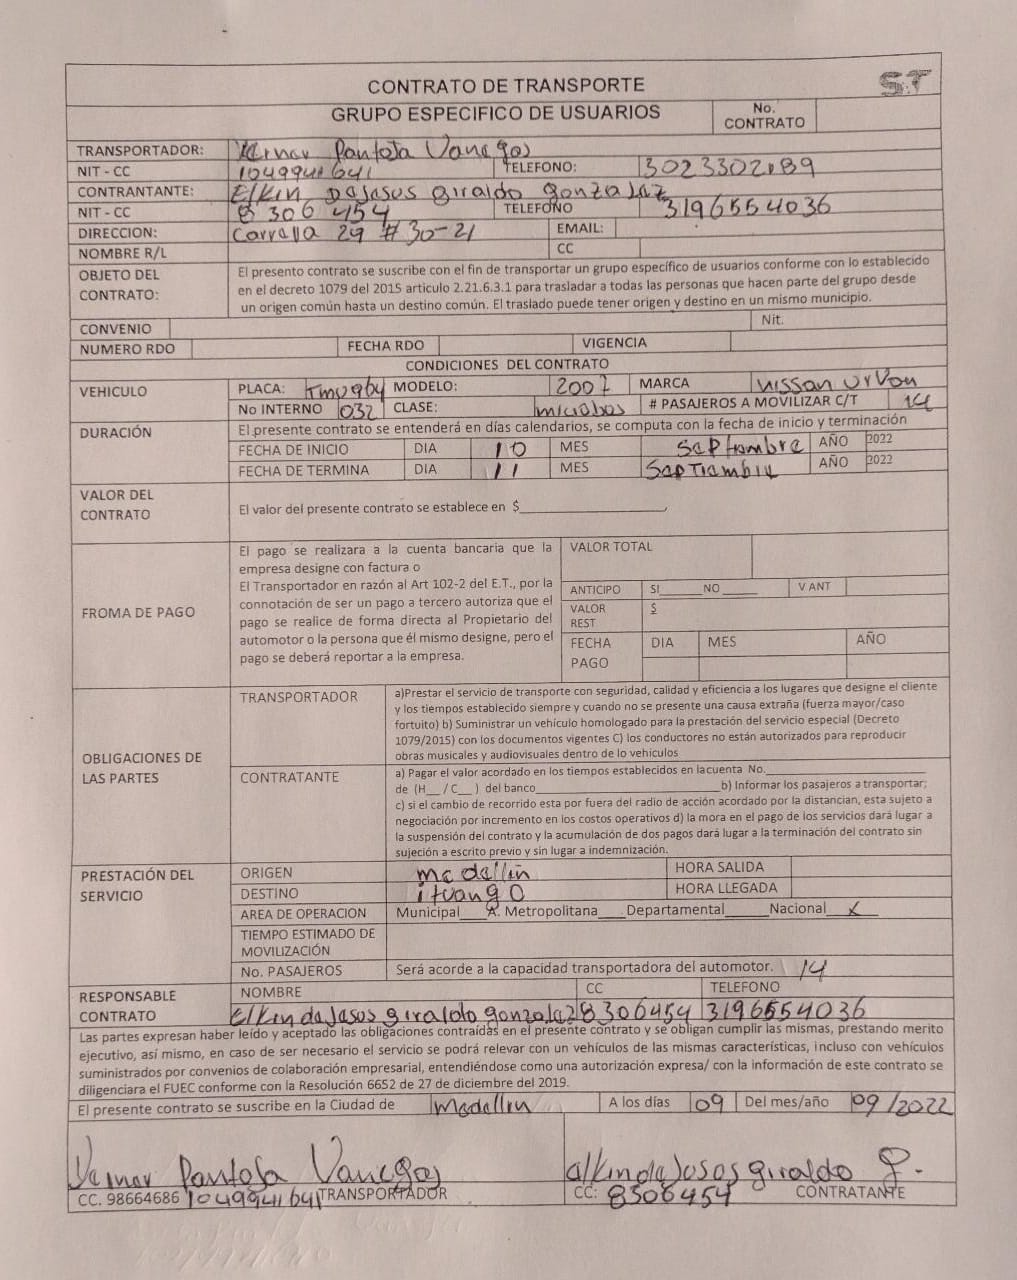 CONTRATO DE TRANSPORTE
ST
GRUPO ESPECIFICO DE USUARIOS
No. CONTRATO
TRANSPORTADOR: Pantoja Vanegas
NIT - CC 1049941641 TELEFONO:
CONTRANTANTE: Elkin DeJesus giraldo gonzalez
NIT - CC 8 306 454 TELEFONO 3196554036
DIRECCION: Carrera 29 # 30-21 EMAIL:
NOMBRE R/L CC
OBJETO DEL CONTRATO:
El presento contrato se suscribe con el fin de transportar un grupo específico de usuarios conforme con lo establecido
en el decreto 1079 del 2015 articulo 2.21.6.3.1 para trasladar a todas las personas que hacen parte del grupo desde
un origen común hasta un destino común. El traslado puede tener origen y destino en un mismo municipio.
CONVENIO Nit.
NUMERO RDO FECHA RDO VIGENCIA
CONDICIONES DEL CONTRATO
VEHICULO PLACA: MODELO: 2007 MARCA Nissan Urvan
No INTERNO 032 CLASE: microbus # PASAJEROS A MOVILIZAR C/T 14
DURACIÓN El presente contrato se entenderá en días calendarios, se computa con la fecha de inicio y terminación
FECHA DE INICIO DIA 10 MES Septiembre AÑO 2022
FECHA DE TERMINA DIA 11 MES Septiembre AÑO 2022
VALOR DEL CONTRATO
El valor del presente contrato se establece en $____________________,
FROMA DE PAGO
El pago se realizara a la cuenta bancaria que la
empresa designe con factura o
El Transportador en razón al Art 102-2 del E.T., por la
connotación de ser un pago a tercero autoriza que el
pago se realice de forma directa al Propietario del
automotor o la persona que él mismo designe, pero el
pago se deberá reportar a la empresa.
VALOR TOTAL
ANTICIPO SI______NO_____ V ANT
VALOR REST $
FECHA PAGO DIA MES AÑO
OBLIGACIONES DE LAS PARTES
TRANSPORTADOR
a)Prestar el servicio de transporte con seguridad, calidad y eficiencia a los lugares que designe el cliente
y los tiempos establecido siempre y cuando no se presente una causa extraña (fuerza mayor/caso
fortuito) b) Suministrar un vehículo homologado para la prestación del servicio especial (Decreto
1079/2015) con los documentos vigentes C) los conductores no están autorizados para reproducir
obras musicales y audiovisuales dentro de lo vehículos
CONTRATANTE
a) Pagar el valor acordado en los tiempos establecidos en lacuenta No.______________________
de (H__ / C__ ) del banco_________________________b) Informar los pasajeros a transportar;
c) si el cambio de recorrido esta por fuera del radio de acción acordado por la distancian, esta sujeto a
negociación por incremento en los costos operativos d) la mora en el pago de los servicios dará lugar a
la suspensión del contrato y la acumulación de dos pagos dará lugar a la terminación del contrato sin
sujeción a escrito previo y sin lugar a indemnización.
PRESTACIÓN DEL SERVICIO
ORIGEN medellin HORA SALIDA
DESTINO ituango HORA LLEGADA
AREA DE OPERACION Municipal____A. Metropolitana____Departamental______Nacional__X__
TIEMPO ESTIMADO DE MOVILIZACIÓN
No. PASAJEROS Será acorde a la capacidad transportadora del automotor. 14
RESPONSABLE CONTRATO
NOMBRE CC TELEFONO
ElkindeJesus giraldo gonzalez 8306454 3196554036
Las partes expresan haber leído y aceptado las obligaciones contraídas en el presente contrato y se obligan cumplir las mismas, prestando merito
ejecutivo, así mismo, en caso de ser necesario el servicio se podrá relevar con un vehículos de las mismas características, incluso con vehículos
suministrados por convenios de colaboración empresarial, entendiéndose como una autorización expresa/ con la información de este contrato se
diligenciara el FUEC conforme con la Resolución 6652 de 27 de diciembre del 2019.
El presente contrato se suscribe en la Ciudad de Medellin A los días 09 Del mes/año 09/2022
Pantoja Vanegas
elkindeJesosgiraldo g.
CC. 98664686 1049941641 TRANSPORTADOR
CC: 8306454 CONTRATANTE